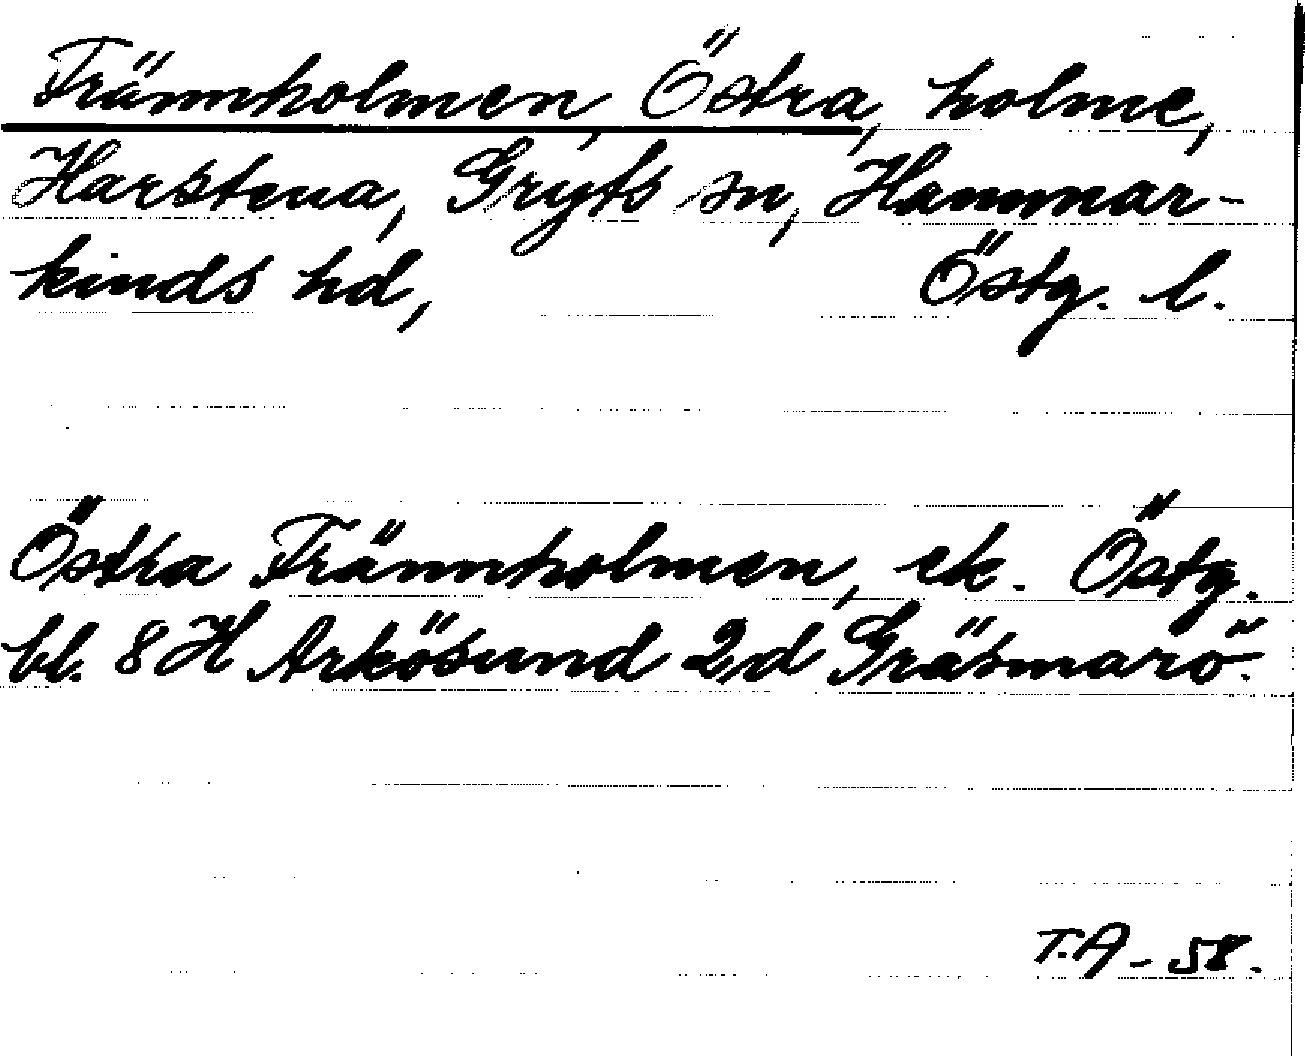 Frännholmen, Östra, holme,
Harstena, Gryts sn, Hammar-
kinds hd, Östg. l.
Östra Frännholmen, ek. Östg.
bl. 8 H Arkösund 2d Gräsmarö.
T.A - 58.